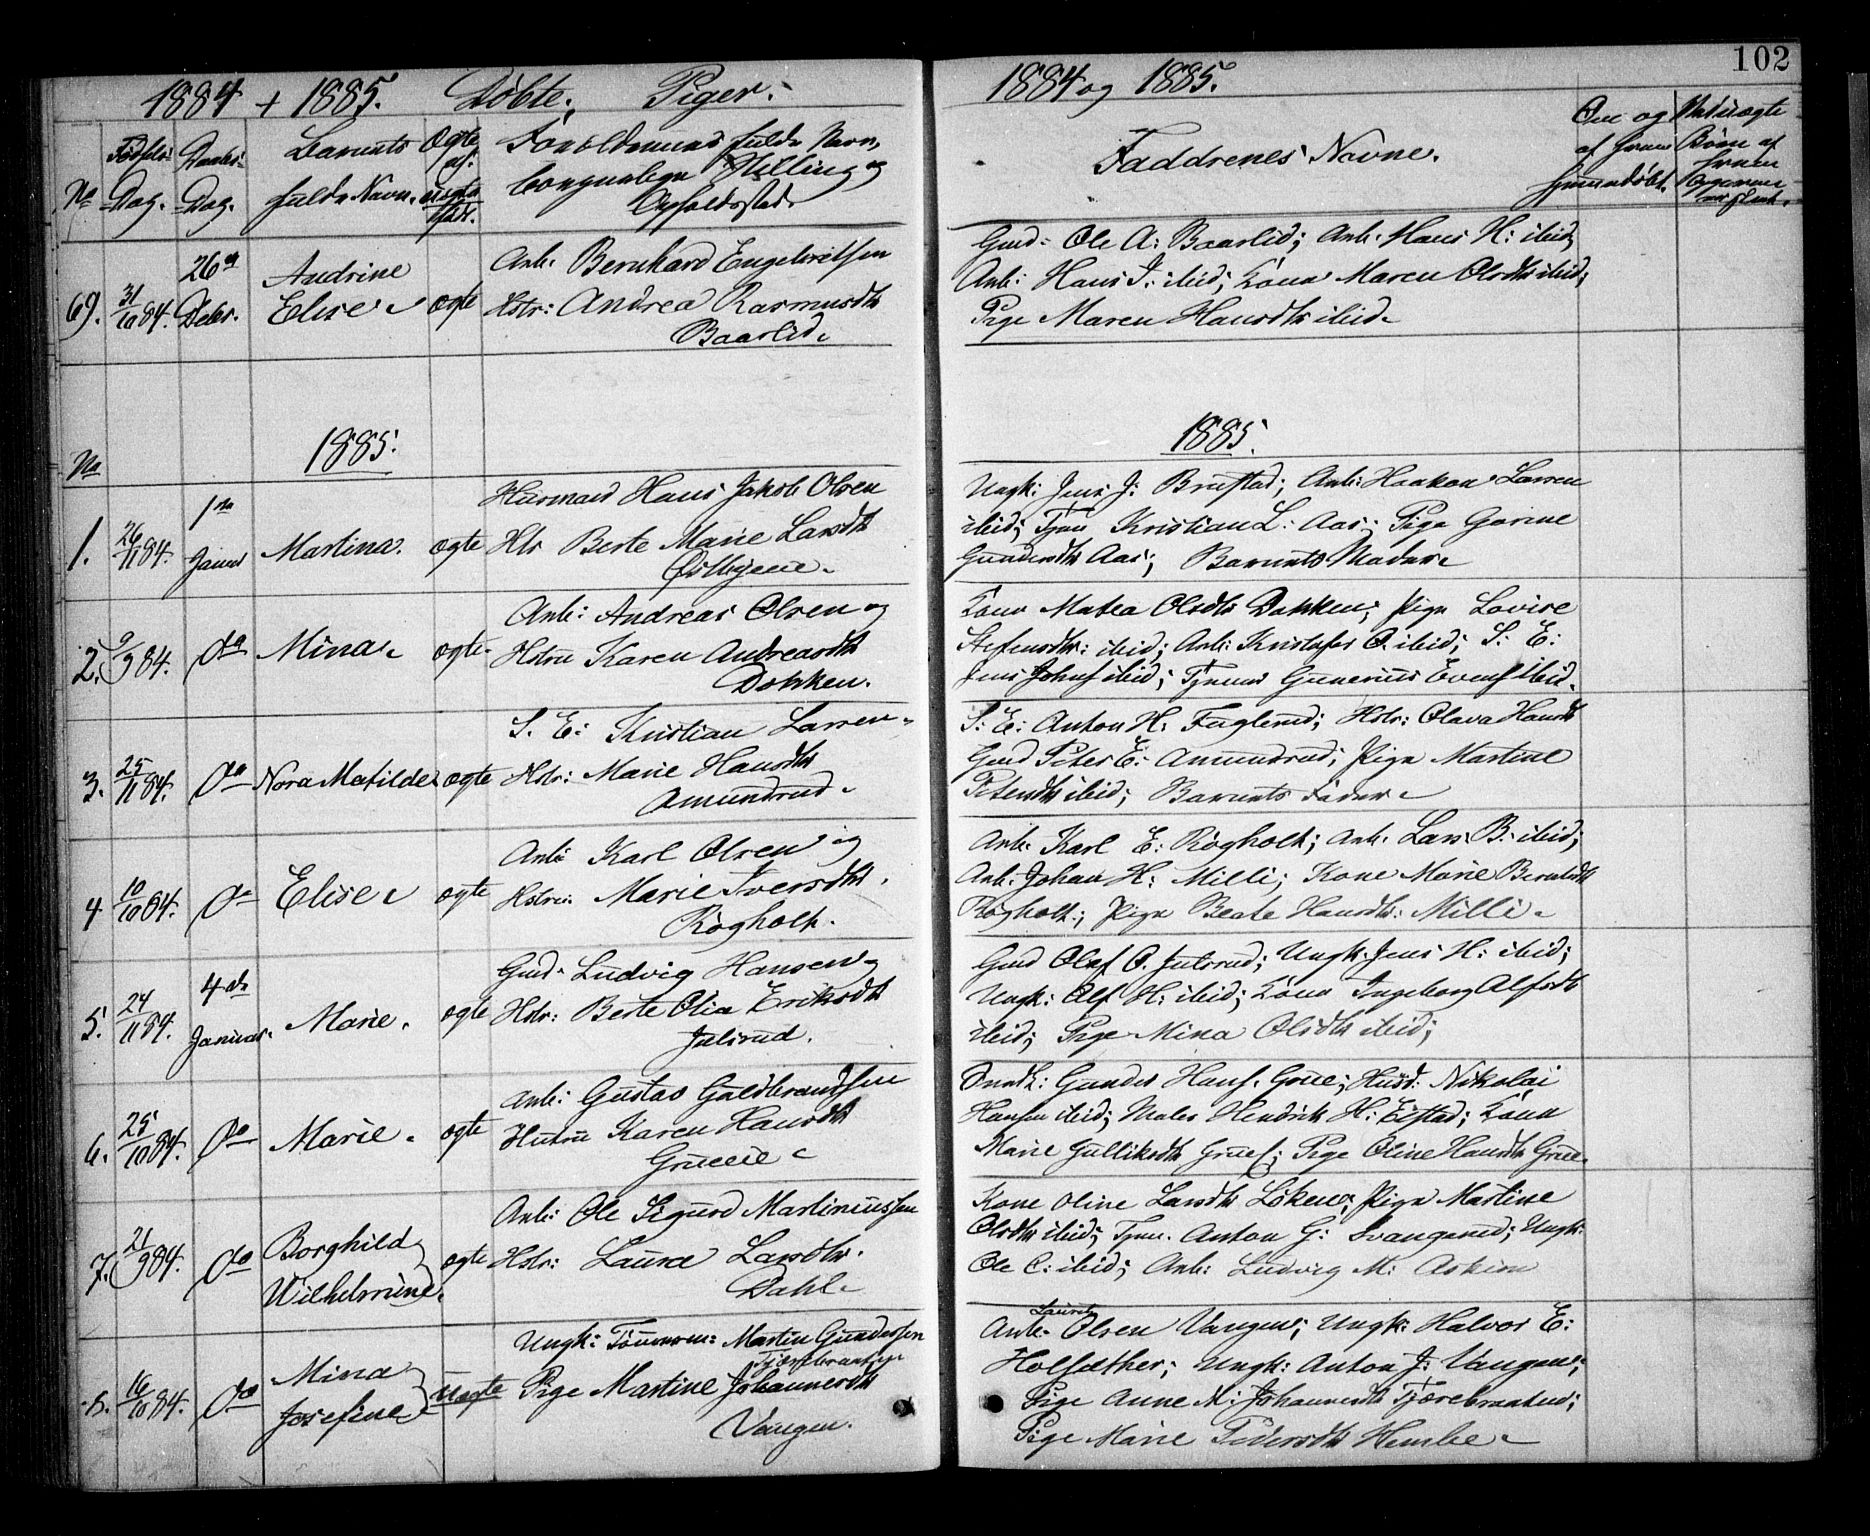 102
1884 + 1885. Döbte, Piger.
1884 og 1885.
No Fødsels Dag. Daabs Dag. Barnets fulde Navn. Ægte el. uægte født. Forældrenes fulde Navn, Stilling og Opholdssted
Faddrenes Navne.
69. 31/10 84. 26de Debr. Andrine Elise ægte
Arb: Bernhard Engebretsen
Hstr: Andrea Rasmusdtr
Baarlid
Gmd: Ole A: Baarlid; Arb: Hans H: ibid;
Arb: Hans J: ibid; Kona Maren Olsdtr ibid;
Pige Maren Hansdtr ibid
1885.
1885.
No
1. 26/11 84. 1ste Januar Martina. ægte
Husmand Hans Jakob Olsen
Hstr Berte Marie Larsdtr
Ungk: Jens J: Brustad; Arb: Haakon Larsen
ibid; Tjen Kristian L: Aas; Pige Gorine
Gundersdtr Aas; Barnets Moder
2. 9/9 84. do Mina ægte
Arb: Andreas Olsen og
Hstru Karen Andreasdtr
Dokken.
Kona Matea Olsdtr Dokken; Pige Lovise
Stefensdtr: ibid; Arb: Kristofer O. ibid; S: E:
Jens Johnss ibid; Tjenes Gunerius Evens ibid.
3. 25/11 84. do Nora Matilde ægte
S. E: Kristian Larsen
Hstr: Marie Hansdtr
Amundrud
S: E: Anton H: Fuglerud; Hstr: Olava Hansdtr
Gmd Peter E: Amundrud; Pige Martine
Petersdtr ibid; Barnets Fader
4 10/10 84. do Elise ægte
Arb: Karl Olsen og
Hstru: Marie Iversdtr.
Røgholt.
Arb: Karl E: Røgholt; Arb: Lars B: ibid;
Arb: Johan H: Milli; Kone Marie Berntsdtr
Røgholt; Pige Beate Hansdtr: Milli
5. 24/11 84. 4de Januar. Marie. ægte
Gmd. Ludvig Hansen
Hstr: Berte Olia Eriksdtr
Julsrud.
Gmd Olaf O. Julsrud; Ungk: Jens H: ibid;
Ungk: Alf H: ibid; Kona Ingeborg Alfsdtr
ibid; Pige Mina Olsdtr ibid;
6. 25/10 84. do Marie. ægte
Arb: Gustav Guldbrandsen
Hustru Karen Hansdtr
Grueeie
Gunder Hanss. Grue; Husd: Nikolai
Hansen ibid; Maler Hendrik H: Eistad; Kona
Marie Gulliksdtr Grue; Pige Oline Hansdtr Grue
7. 21/9 84. do Borghild Wilhelmine. ægte
Arb: Ole Sigurd Martiniussen
Hstr: Laura Larsdtr.
Dahl
Kone Oline Larsdtr Løken; Pige Martine
Olsdtr ibid; Tjen. Anton G: Svangerud; Ungk:
Ole C: ibid; Arb: Ludvig M: Askim
8. 16/10 84. do Mina Josefine uægte
Ungk: Tømmerm: Martin Gundersen
Tjærebraaten
Pige Martine Johannesdtr
Vangen.
Laurits
Arb. Olsen Vangen; Ungk: Halvor E:
Holsæther; Ungk: Anton J: Vangen;
Pige Anne M: Johannesdtr Tjærebraaten;
Pige Marie Pedersdtr